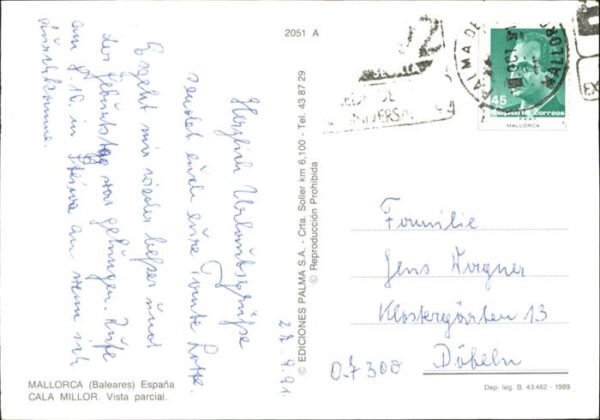 2051 A
Herzlich Urlaubsgrüße
sendet euch eure Tante Lotte.
Es geht mir wieder besser und
der Geburtstag war gelungen. Rufe
am 8.10. in Steina an wenn ich
zurückkomme.
27.9.91
© EDICIONES PALMA S.A. - Crta. Soller km 6,100 - Tel. 43 87 29
© Reproducción Prohibida
PALMA DE
MALLORCA
OCT
45
España correos
MALLORCA
Familie
Jens Wagner
Klostergärten 13
Döbeln
O.7300
MALLORCA (Baleares) España
CALA MILLOR. Vista parcial.
Dep. leg. B. 43.462 - 1989